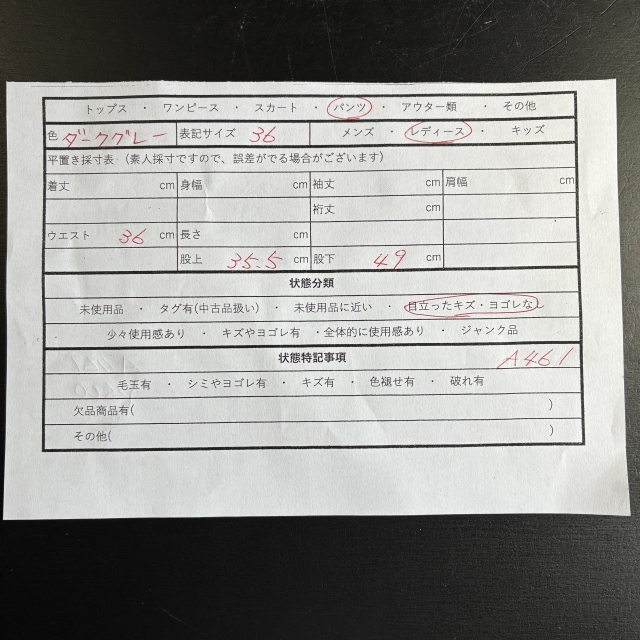 トップス ・ ワンピース ・ スカート ・ パンツ ・ アウター類 ・ その他
色 ダークグレー 表記サイズ 36 メンズ ・ レディース ・ キッズ
平置き採寸表 (素人採寸ですので、誤差がでる場合がございます)
着丈 cm 身幅 cm 袖丈 cm 肩幅 cm
裄丈 cm
ウエスト 36 cm 長さ cm
股上 35.5 cm 股下 49 cm
状態分類
未使用品 ・ タグ有(中古品扱い) ・ 未使用品に近い ・ 目立ったキズ・ヨゴレなし
少々使用感あり ・ キズやヨゴレ有 ・全体的に使用感あり ・ ジャンク品
状態特記事項 A461
毛玉有 ・ シミやヨゴレ有 ・ キズ有 ・ 色褪せ有 ・ 破れ有
欠品商品有( )
その他( )